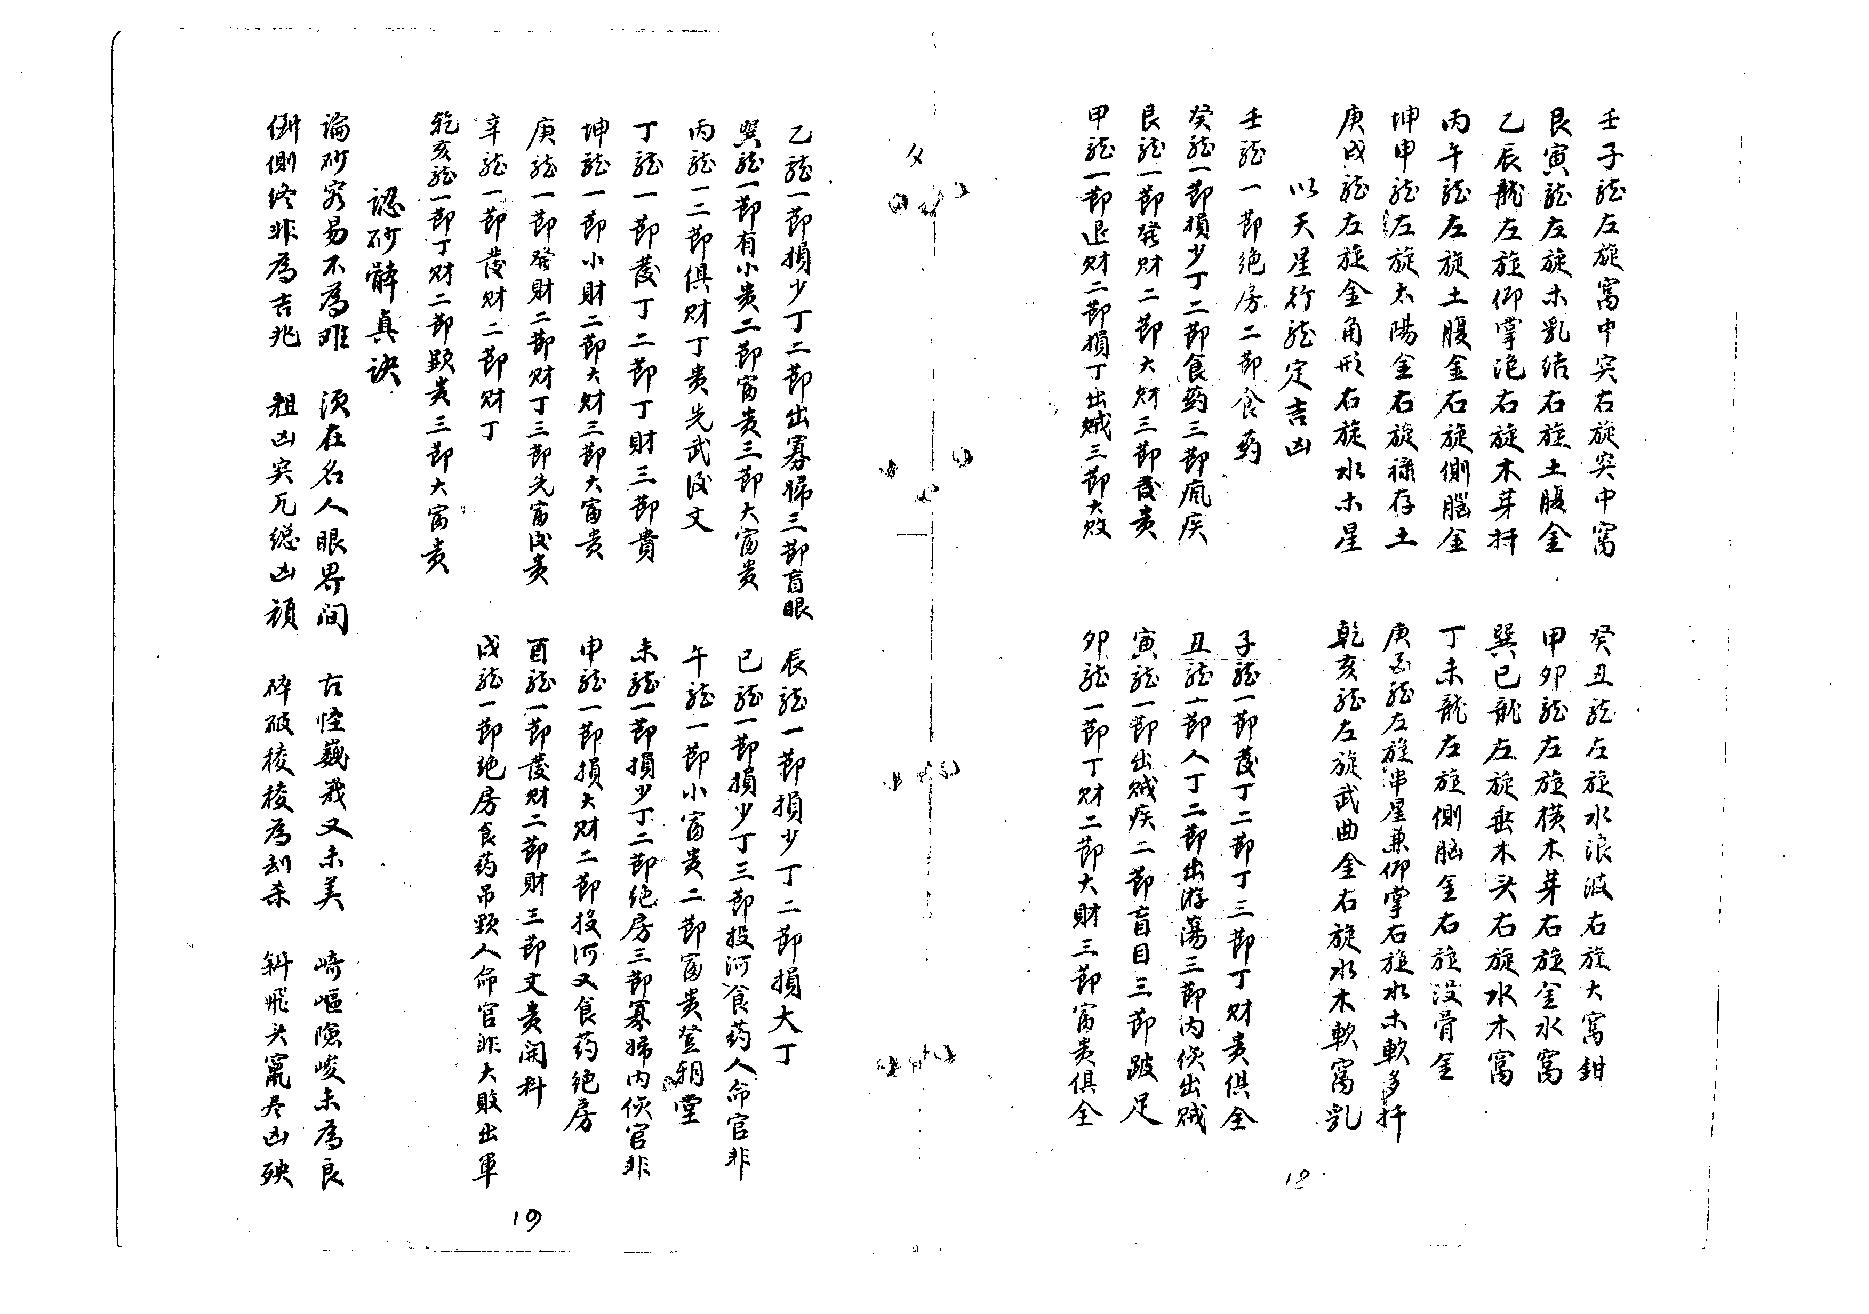 壬子龍左旋窩中突右旋突中窩
癸丑龍左旋水浪波右旋大窩鉗
艮寅龍左旋木乳结右旋土腹金
甲卯龍左旋横木芽右旋金水窩
乙辰龍左旋仰掌泡右旋木芽扦
巽巳龍左旋垂木头右旋水木窩
丙午龍左旋土腹金右旋侧腦金
丁未龍左旋側脑金右旋没骨金
坤申龍左旋太陽金右旋禄存土
庚酉龍左旋串星兼仰掌右旋水木軟多扦
庚戌龍左旋金角形右旋水木星
乾亥龍左旋武曲金右旋水木軟窩乳
以天星行龍定吉凶
壬龍一節绝房二節食葯
子龍一節發丁二節丁三節丁财贵俱全
癸龍一節損少丁二節食葯三節瘋疾
丑龍一節人丁二節出游蕩三節内侠出贼
艮龍一節発财二節大财三節發贵
寅龍一節出贼疾二節盲目三節跛足
甲龍一節退财二節損丁出贼三節大败
卯龍一節丁财二節大財三節富贵俱全
乙龍一節損少丁二節出寡婦三節盲眼
辰龍一節損少丁二節損大丁
巽龍一節有小贵二節富贵三節大富贵
巳龍一節損少丁三節投河食药人命官非
丙龍一二節俱财丁贵先武後文
午龍一節小富贵二節富贵登朝堂
丁龍一節發丁二節丁財三節貴
未龍一節損少丁二節绝房三節寡婦内侠官非
坤龍一節小財二節大财三節大富贵
申龍一節損大财二節投河又食药绝房
庚龍一節発财二節财丁三節先富後贵
酉龍一節發财二節财三節文贵開科
辛龍一節發财二節财丁
戌龍一節绝房食药吊颈人命官非大敗出軍
乾亥龍一節丁财二節顕贵三節大富贵
認砂辭真诀
論砂容易不為难 须在名人眼界间 古怪巍峩又未美 崎嶇險峻未為良
倒侧终非為吉兆 粗凶突兀總凶頑 碎破棱棱為刼杀 斜飛头竄尽凶殃
18
19